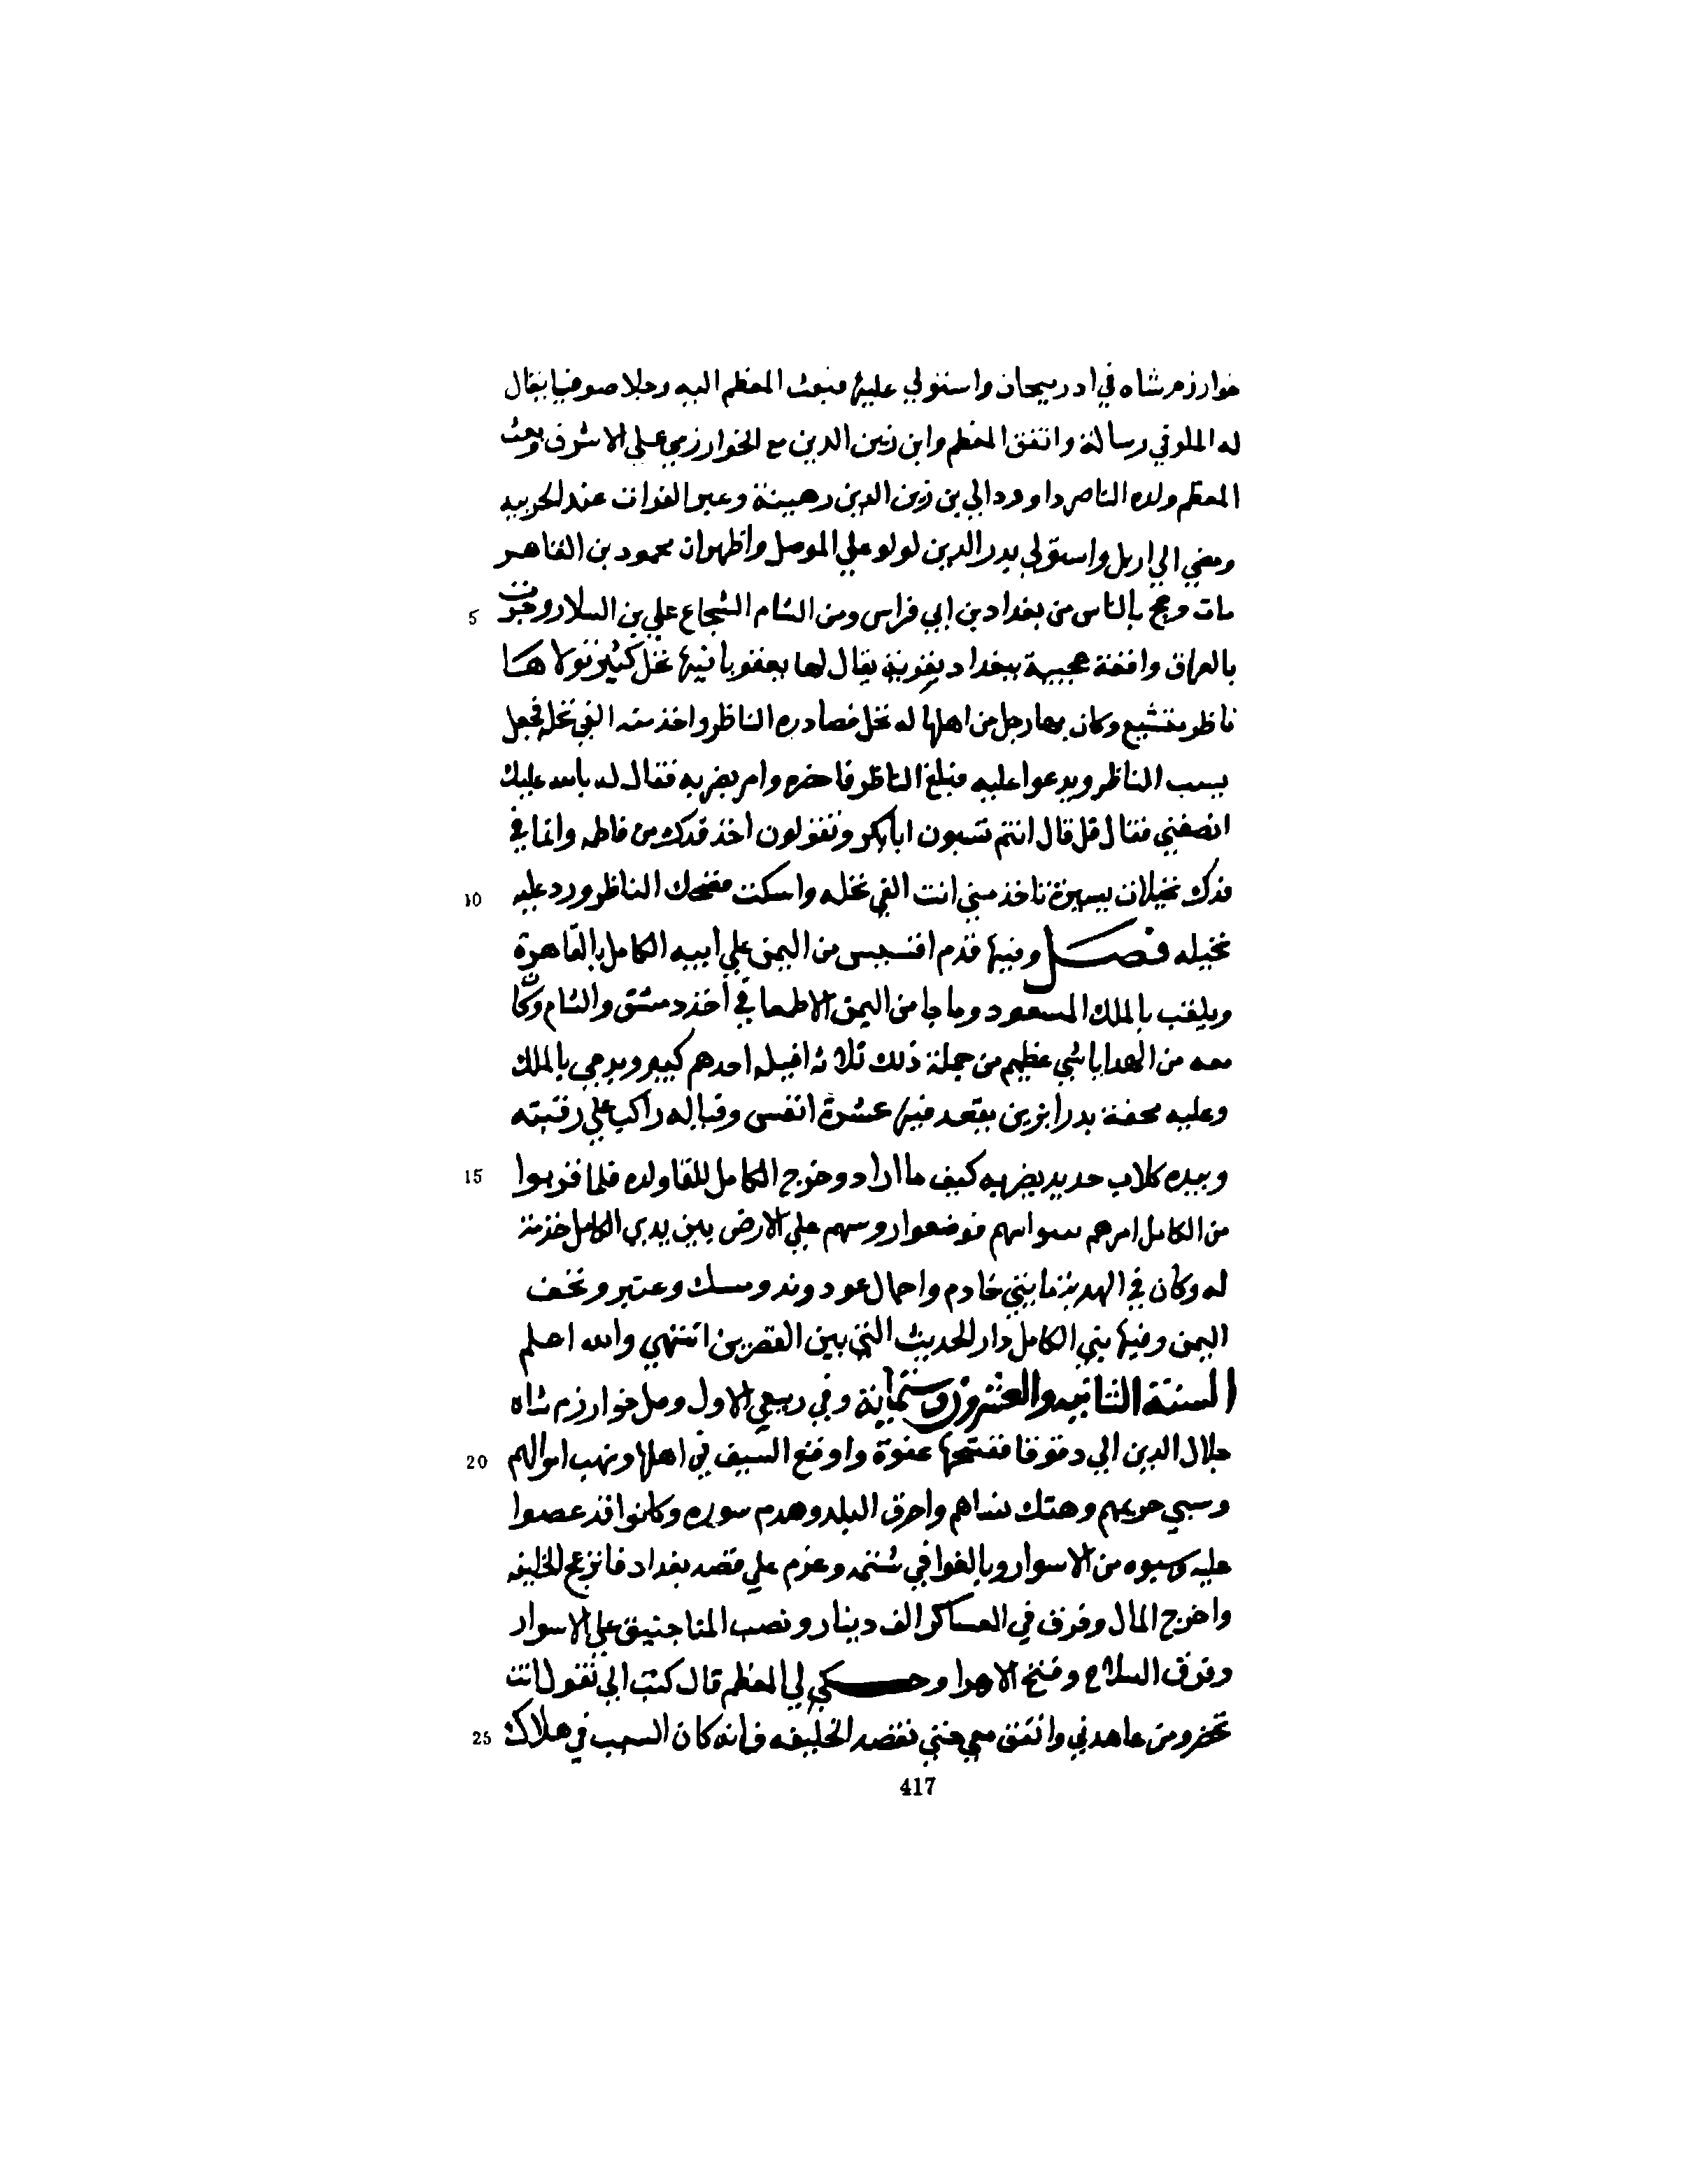 خوارزم شاه في ادربيجان واستولي عليها فبعث المعظم اليه رجلا صوفيا يقال
له الملق في رسالة واتفق المعظم وابن زين الدين مع الخوارزمي علي الاشرف وبعث
المعظم ولده الناصر داوود الي بن زين الدين رهينة وعبر الفرات عند الحربيه
ومضي الي اربل واستولي بدر الدين لولو علي الموصل واظهر ان محمود بن القاهر
مات وحج بالناس من بغداد بن ابي فراس ومن الشام الشجاع علي بن السلار وجرت 5
بالعراق واقعة عجيبة ببغداد بقرية يقال لها بعقوبا فيها نخل كثير تولاها
ناظر متشيع وكان بها رجل من اهلها له نخل فصادره الناظر واخذ منه الفي نخله فجعل
يسب الناظر ويدعوا عليه فبلغ الناظر فاحضره وامر بضربه فقال له بالله عليك
انصفني فقال قل قال انتم تسبون ابا بكر وتقولون اخذ فدك من فاطمه وانما في
فدك نخيلات يسيرة تاخذ مني انت الفي نخله واسكت فضحك الناظر ورد عليه 10
نخيله فصل وفيها قدم اقسيس من اليمن علي ابيه الكامل بالقاهرة
ويلقب بالملك المسعود وما جا من اليمن الا طمعا في أخذ دمشق والشام وكان
معه من الهدايا شي عظيم من جملة ذلك ثلاثة افيله احدهم كبير ويدعي بالملك
وعليه محفة بدرابزين يقعد فيها عشرة انفس وفياله راكب علي رقبته
وبيده كلاب حديد يضربه كيف ما اراد وخرج الكامل للقا ولده فلما قربوا 15
من الكامل امرهم سواسهم فوضعوا روسهم علي الارض بين يدي الكامل خدمة
له وكان في الهدية مايتي خادم واحمال عود وند ومسك وعنبر وتحف
اليمن وفيها بني الكامل دار الحديث التي بين القصرين انتهي والله اعلم
السنة الثانيه والعشرون وستمآية وفي ربيع الاول وصل خوارزم شاه
جلال الدين الي دقوقا ففتحها عنوة واوقع السيف في اهلها ونهب اموالهم 20
وسبي حريمهم وهتك نساهم واحرق البلد وهدم سوره وكانوا قد عصوا
عليه وسبوه من الاسوار وبالغوا في شتمه وعزم علي قصد بغداد فانزعج الخليفه
واخرج المال وفرق في العساكر الف دينار ونصب المناجنيق علي الاسوار
وفرق السلاح وفتح الاهرا وحكي لي المعظم قال كتب الي تقول انت
تحضر ومن عاهدني واتفق معي حتي نقصد الخليفه فانه كان السبب في هلاك 25
417